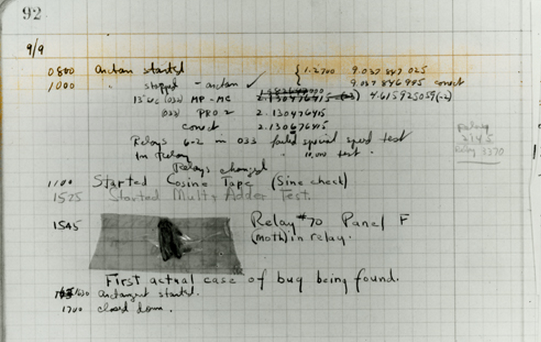 92
9/9
0800 Antan started { 1.2700 9.037 847 025
1000 " stopped - antan ✓ 9.037 846 995 conect
13" UC (032) MP - MC 2.130476415 (-3) 4.615925059(-2)
(033) PRO 2 2.130476415
conect 2.130676415
Relays 6-2 in 033 failed special speed test
In Relay " 10,000 test.
Relays changed
1100 Started Cosine Tape (Sine check)
1525 Started Mult + Adder Test.
Relay
2145
Relay 3370
1545 Relay #70 Panel F
(Moth) in relay.
First actual case of bug being found.
1630 antangent started.
1700 closed down.